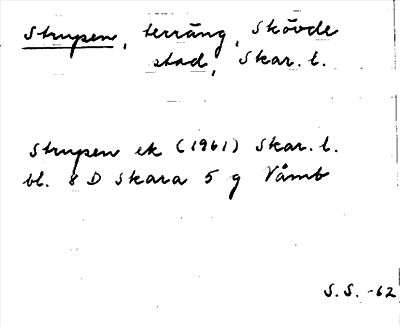 Strupen, terräng, Skövde
stad, Skar. l.
Strupen ek (1961) Skar. l.
bl. 8 D Skara 5 g Våmb
S.S. -62